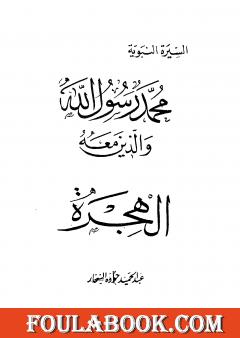 السيرة النبوية
محمد رسول الله
والذين معه
الهجرة
عبد الحميد جوده السحار
FOULABOOK.COM